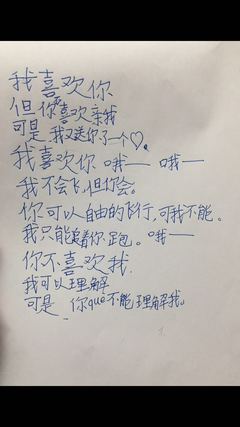 我喜欢你
但你喜欢亲我
可是,我又送你了一个♡。
我喜欢你 哦—— 哦—
我不会飞,但你会。
你可以自由的飞行,可我不能。
我只能追着你跑。 哦——
你不喜欢我.
我可以理解
可是 你que不能理解我。